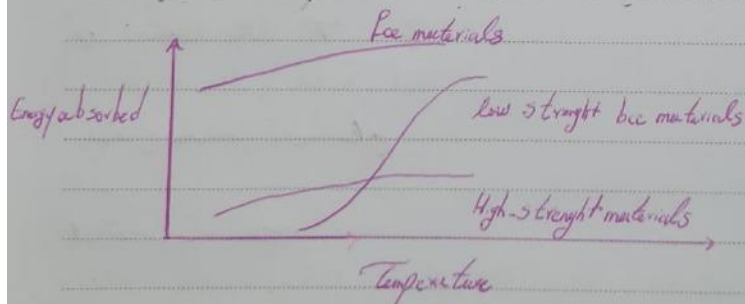 Fcc materials
Energy absorbed
low strenght bcc materials
High-strenght materials
Temperature